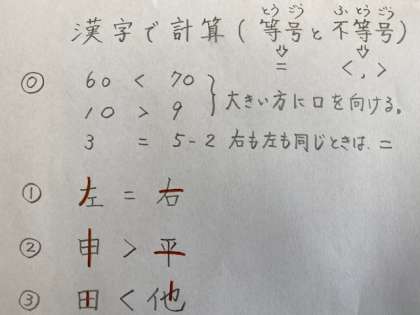 漢字で計算(等号と不等号)
とうごう ふとうごう
⇩ ⇩
= <,>
⓪ 60 < 70
10 > 9
大きい方に口を向ける。
3 = 5-2 右も左も同じときは、=
① 左 = 右
② 申 > 平
③ 田 < 他